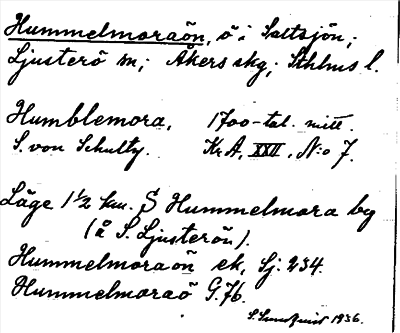 Hummelmoraön, ö i Saltsjön,
Ljusterö sn; Åkers skg; Sthlms l.
Humblemora, 1700-tal. mitt.
S. von Schulty. Kr A, XXII, N:o 7.
Läge 1½ km. S Hummelmora by
(å S. Ljusterön).
Hummelmoraön ek, Sj. 234.
Hummelmoraö G.76.
S. Sundqvist 1936.